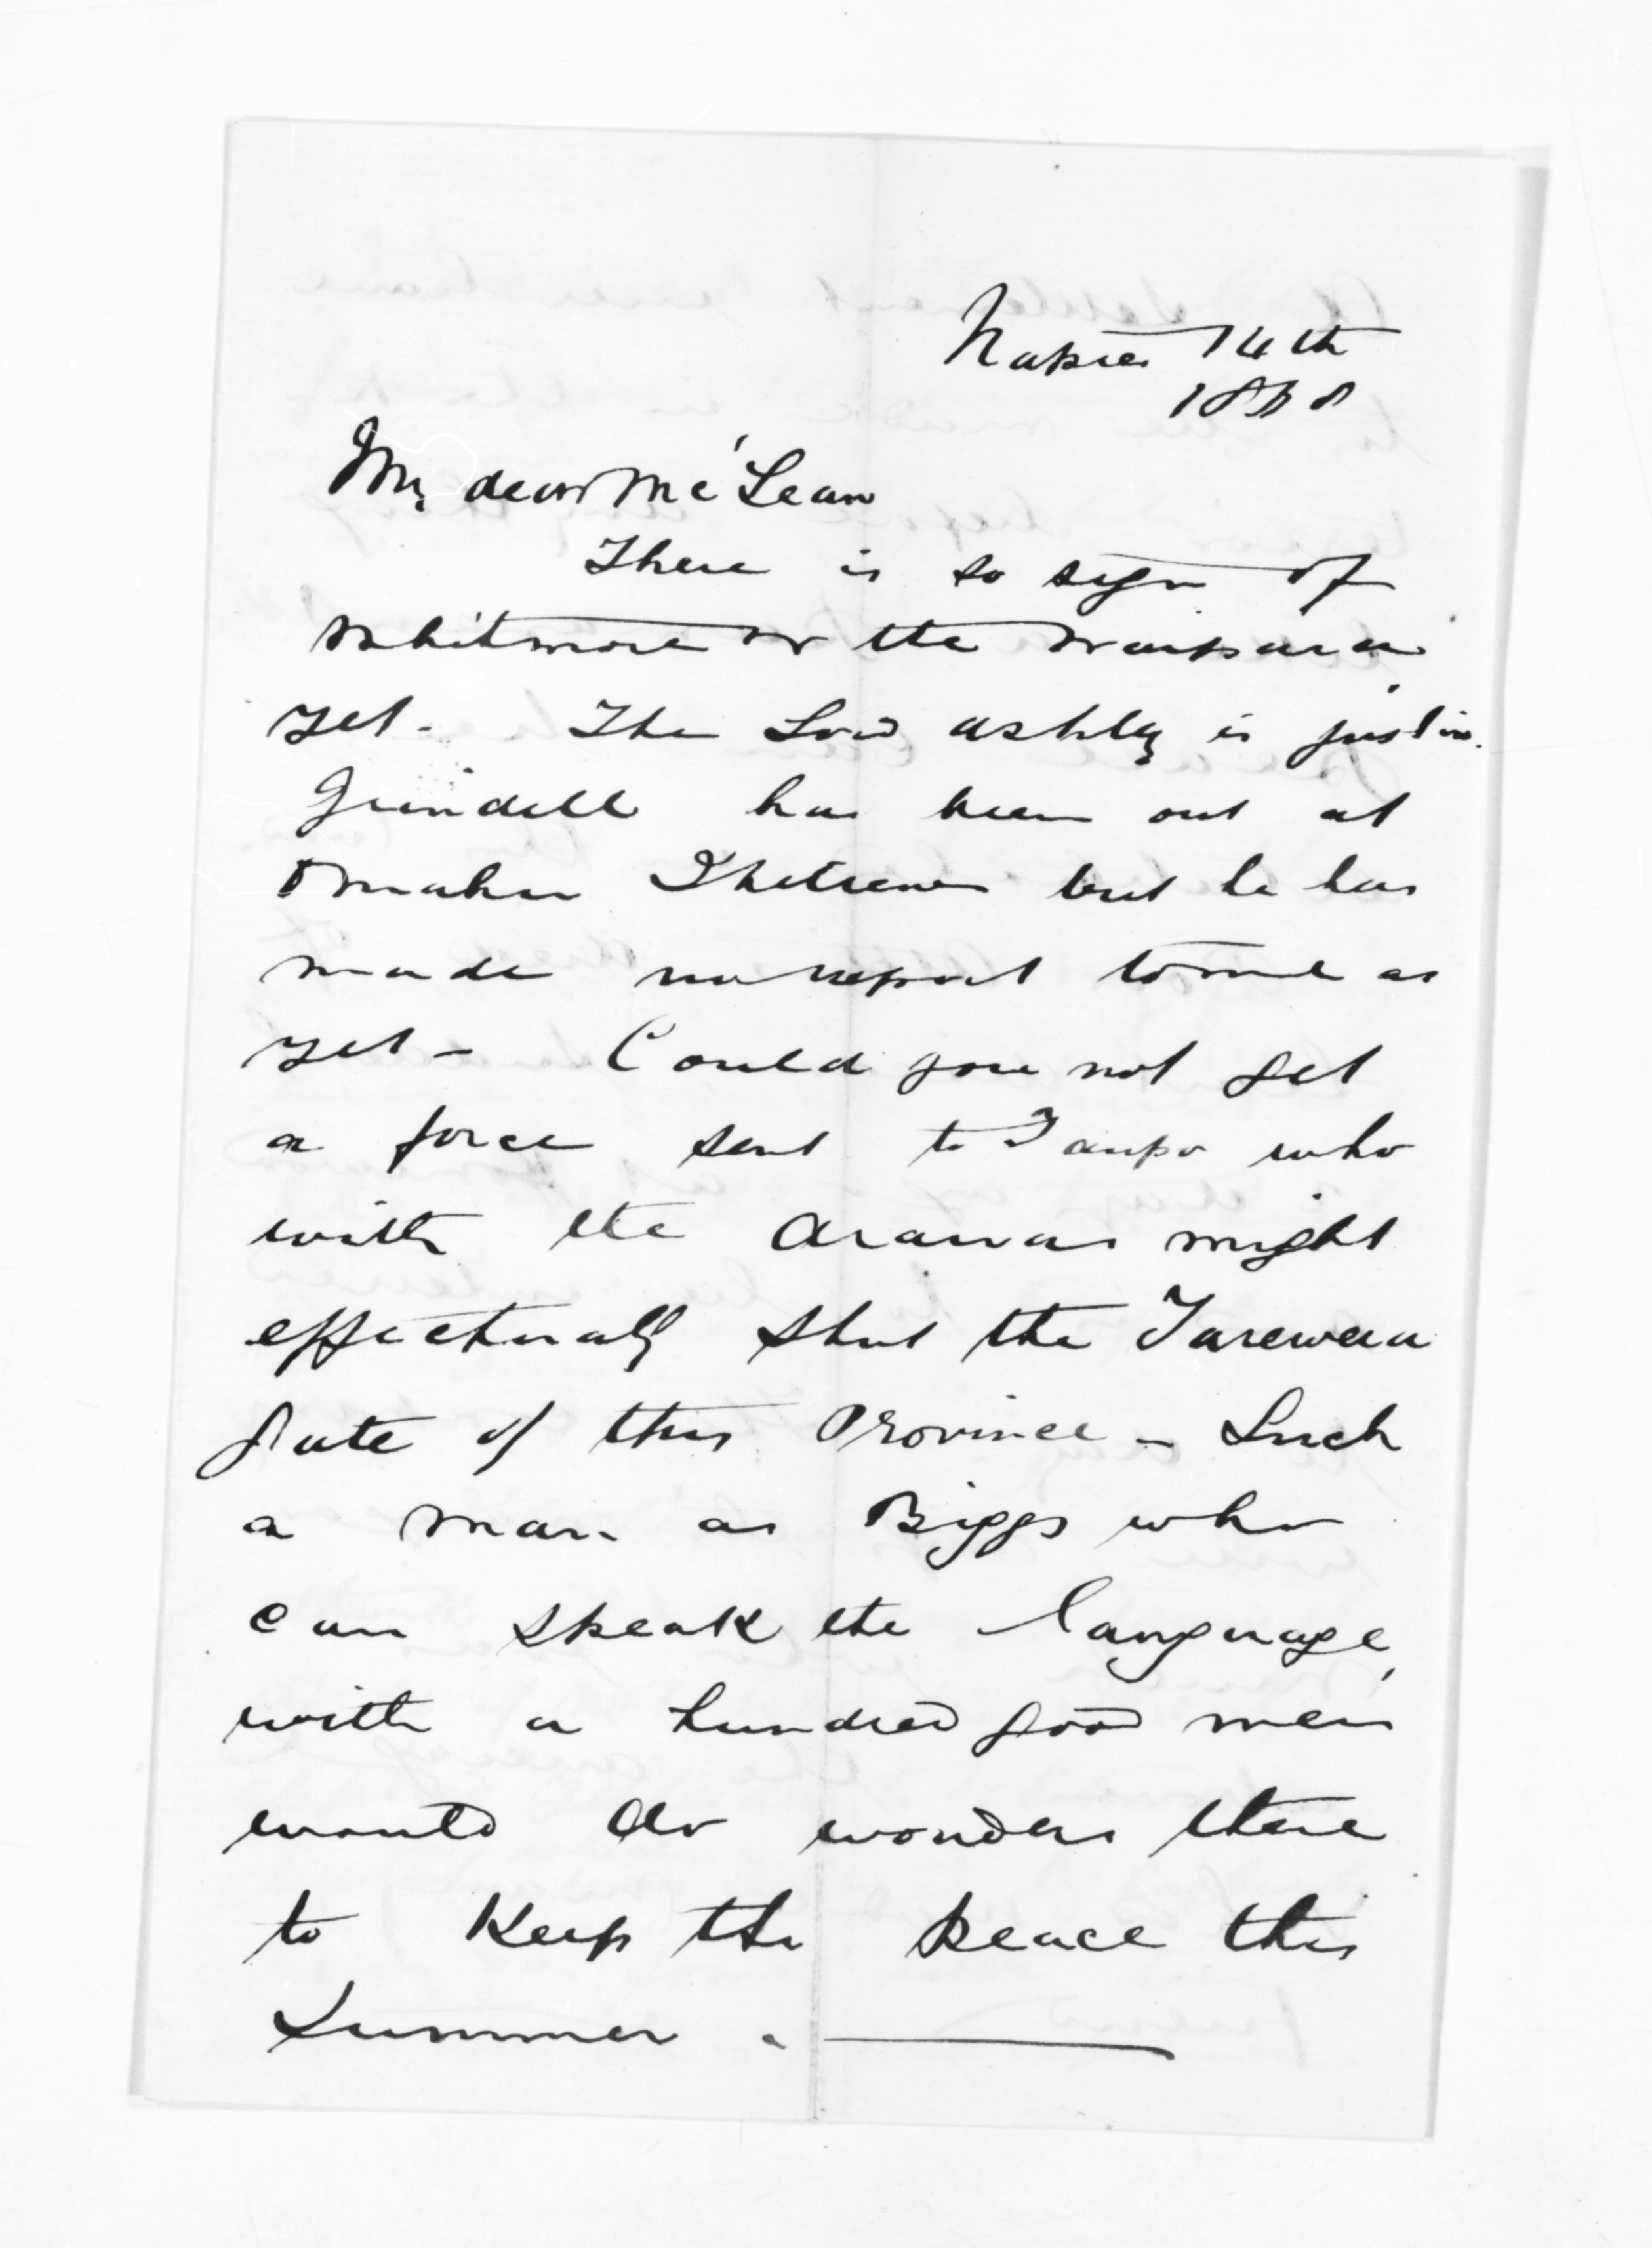 Napier 14th
1868
My dear McLean
There is no sign of
Whitmore or the Waipara
yet. The Lord Ashley is just in.
Grindell has been out at
Omahu but he has
made no report to me as
yet - Could you not get
a force sent to Taupo who
with the Arawas might
effectually shut the Tarewera
gate of this Province - Such
a man as Biggs who
can speak the language,
with a hundred good men
would do wonders there
to keep the peace this
Summer. -